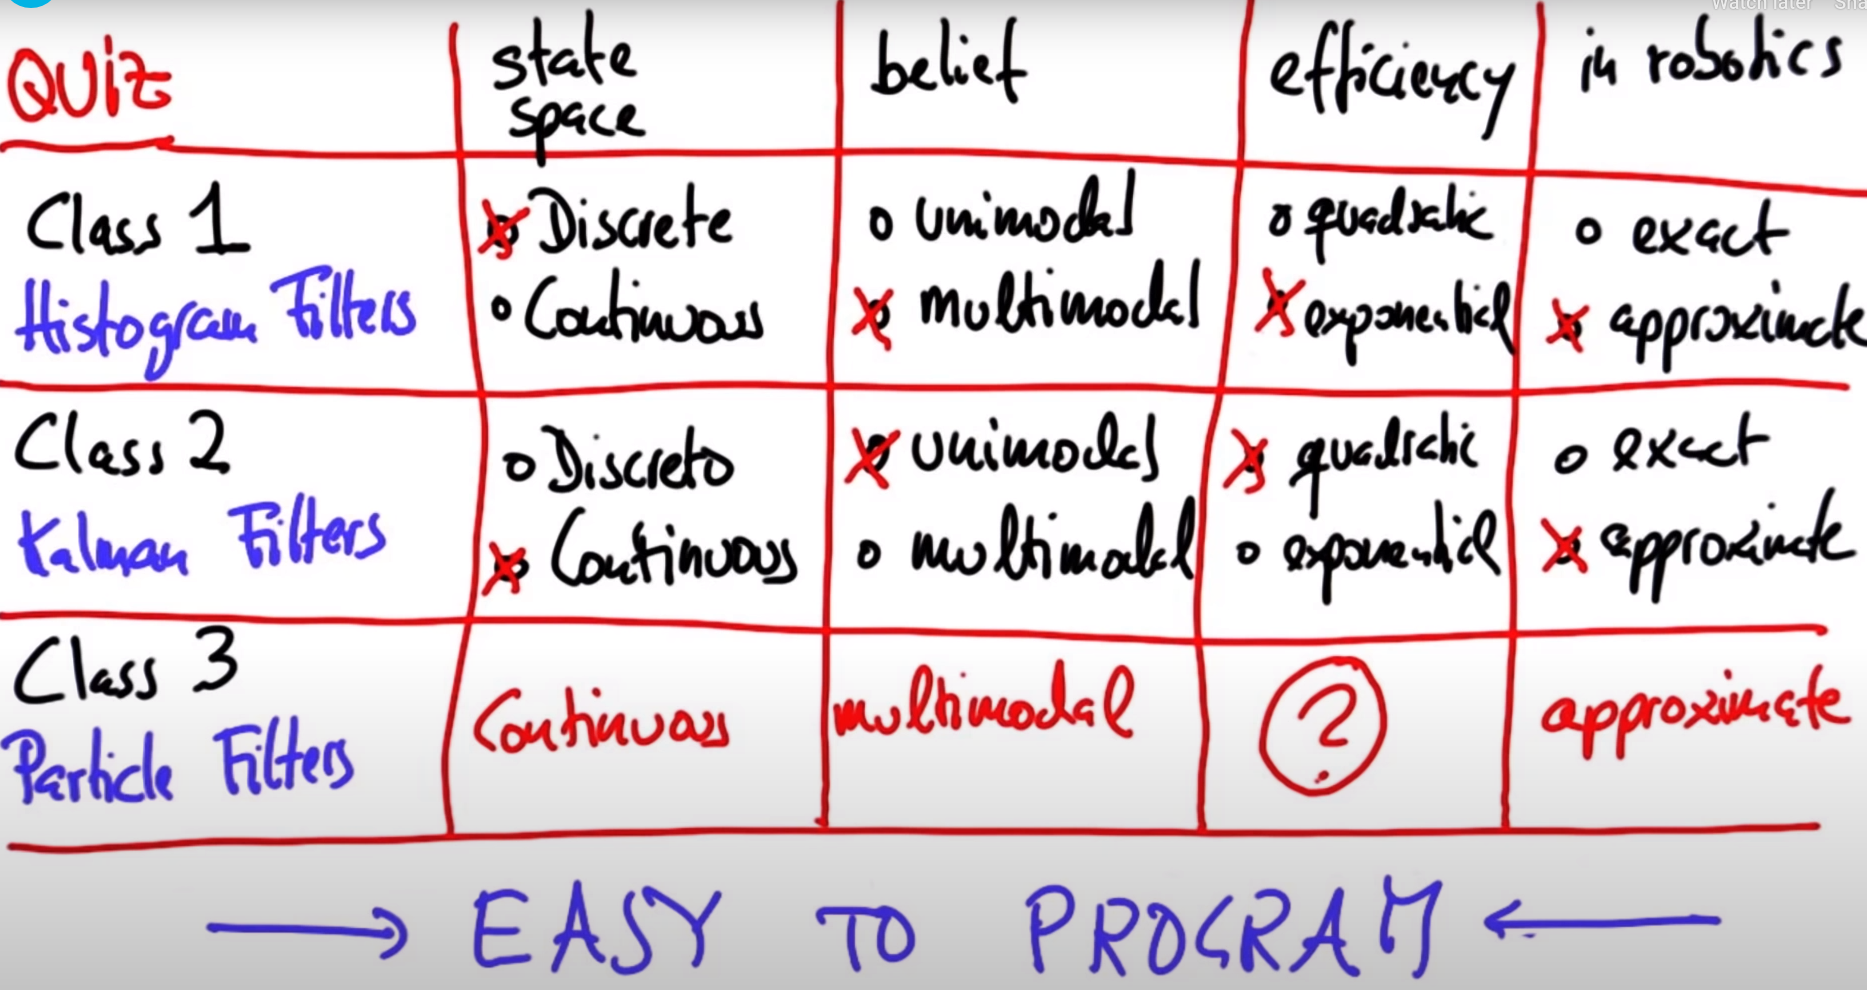 Watch later Sha
QUiZ
state space
belief
efficiency
in robotics
Class 1
Histogram Filters
Discrete
Continuous
unimodal
multimodal
quadratic
exponential
exact
approximate
Class 2
Kalman Filters
Discrete
Continuous
unimodal
multimodal
quadratic
exponential
exact
approximate
Class 3
Particle Filters
Continuous
multimodal
?
approximate
→ EASY TO PROGRAM ←